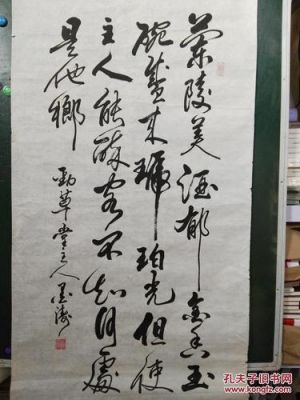 蘭陵美酒郁金香玉
碗盛来琥珀光但使
主人能醉客不知何處
是他鄉
勁草堂主人墨
孔夫子旧书网